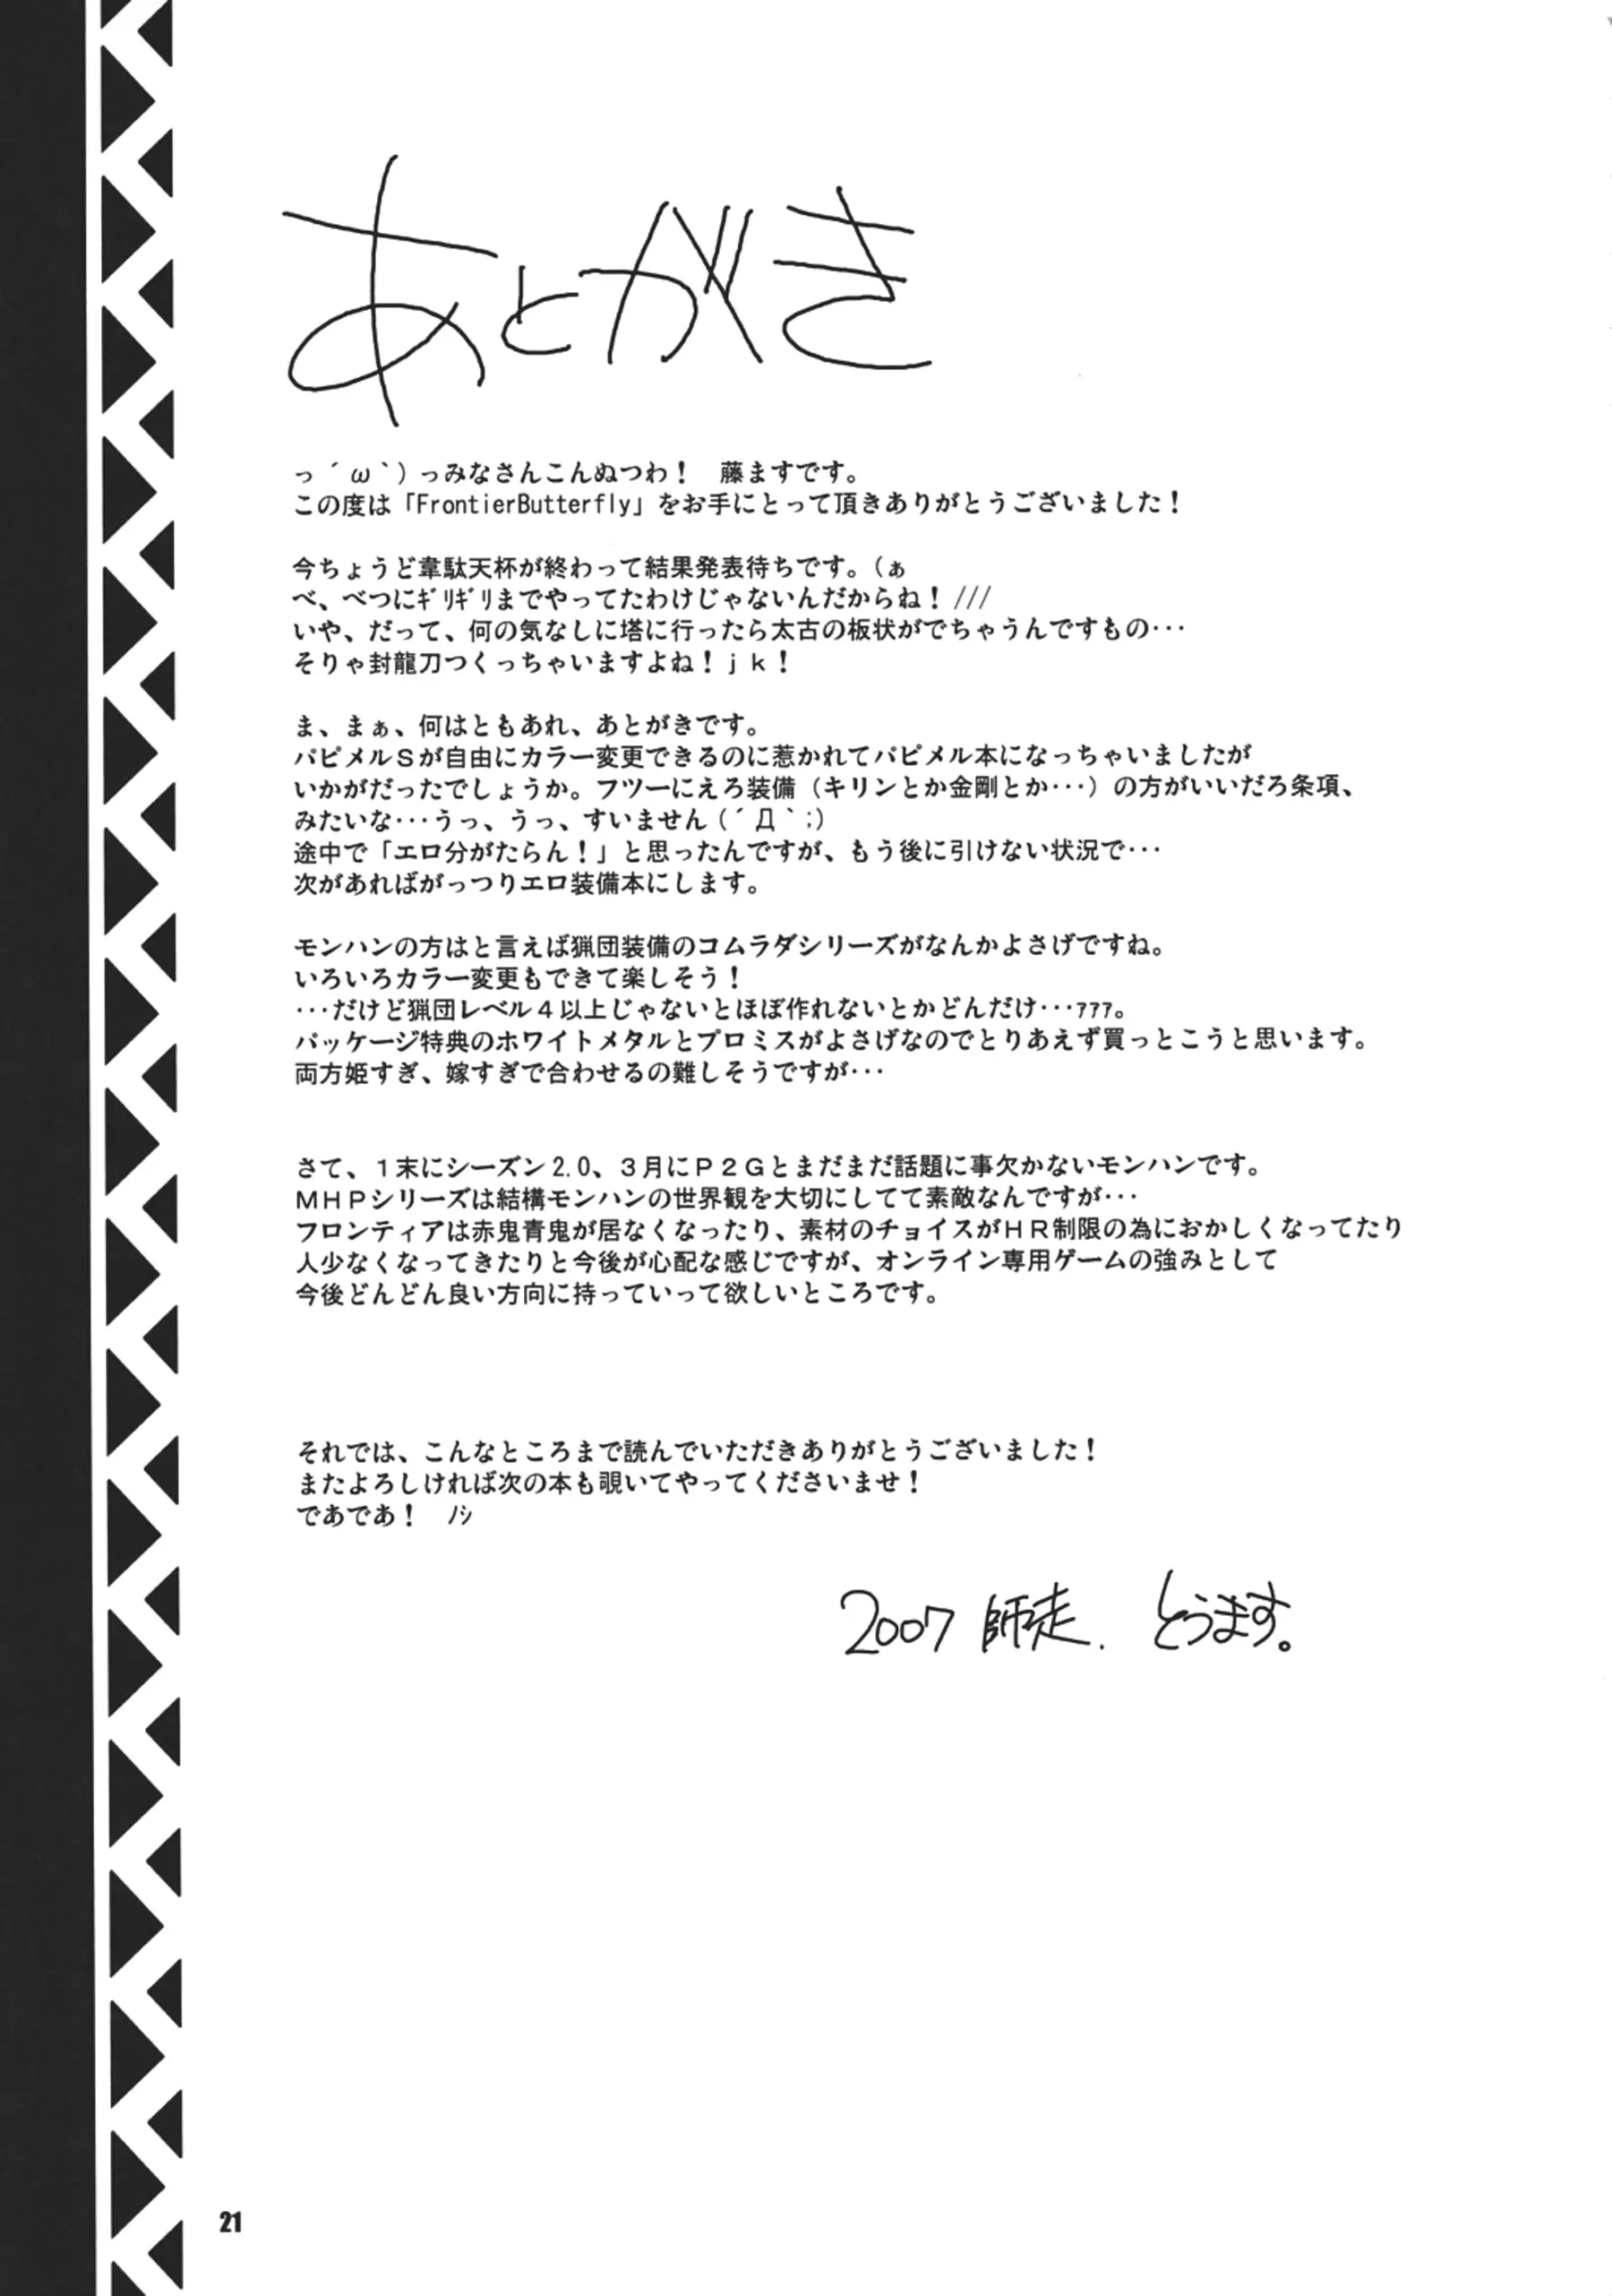 あとがき
っ´ω｀)っみなさんこんぬつわ！　藤ますです。
この度は「FrontierButterfly」をお手にとって頂きありがとうございました！
今ちょうど韋駄天杯が終わって結果発表待ちです。（ぁ
べ、べつにｷﾞﾘｷﾞﾘまでやってたわけじゃないんだからね！///
いや、だって、何の気なしに塔に行ったら太古の板状がでちゃうんですもの･･･
そりゃ封龍刀つくっちゃいますよね！ｊｋ！
ま、まぁ、何はともあれ、あとがきです。
パピメルＳが自由にカラー変更できるのに惹かれてパピメル本になっちゃいましたが
いかがだったでしょうか。フツーにえろ装備（キリンとか金剛とか･･･）の方がいいだろ条項、
みたいな･･･うっ、うっ、すいません(´Д｀;)
途中で「エロ分がたらん！」と思ったんですが、もう後に引けない状況で･･･
次があればがっつりエロ装備本にします。
モンハンの方はと言えば猟団装備のコムラダシリーズがなんかよさげですね。
いろいろカラー変更もできて楽しそう！
･･･だけど猟団レベル４以上じゃないとほぼ作れないとかどんだけ･･･ｧｧｧ。
パッケージ特典のホワイトメタルとプロミスがよさげなのでとりあえず買っとこうと思います。
両方姫すぎ、嫁すぎで合わせるの難しそうですが･･･
さて、１末にシーズン2.0、３月にＰ２Ｇとまだまだ話題に事欠かないモンハンです。
ＭＨＰシリーズは結構モンハンの世界観を大切にしてて素敵なんですが･･･
フロンティアは赤鬼青鬼が居なくなったり、素材のチョイスがＨＲ制限の為におかしくなってたり
人少なくなってきたりと今後が心配な感じですが、オンライン専用ゲームの強みとして
今後どんどん良い方向に持っていって欲しいところです。
それでは、こんなところまで読んでいただきありがとうございました！
またよろしければ次の本も覗いてやってくださいませ！
であであ！　ﾉｼ
2007 師走. とうます。
21